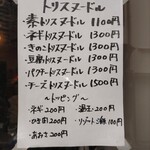 トリスヌードル
・素トリスヌードル 1100円
・ネギトリスヌードル 1300円
・きのこトリスヌードル 1300円
・豆腐トリスヌードル 1300円
・パクチートリスヌードル 1300円
・チーズトリスヌードル 1500円
〜トッピング〜
・ネギ 200円 ・海苔 200円
・ひき肉 200円 ・リゾットご飯 100円
・あおさ 200円